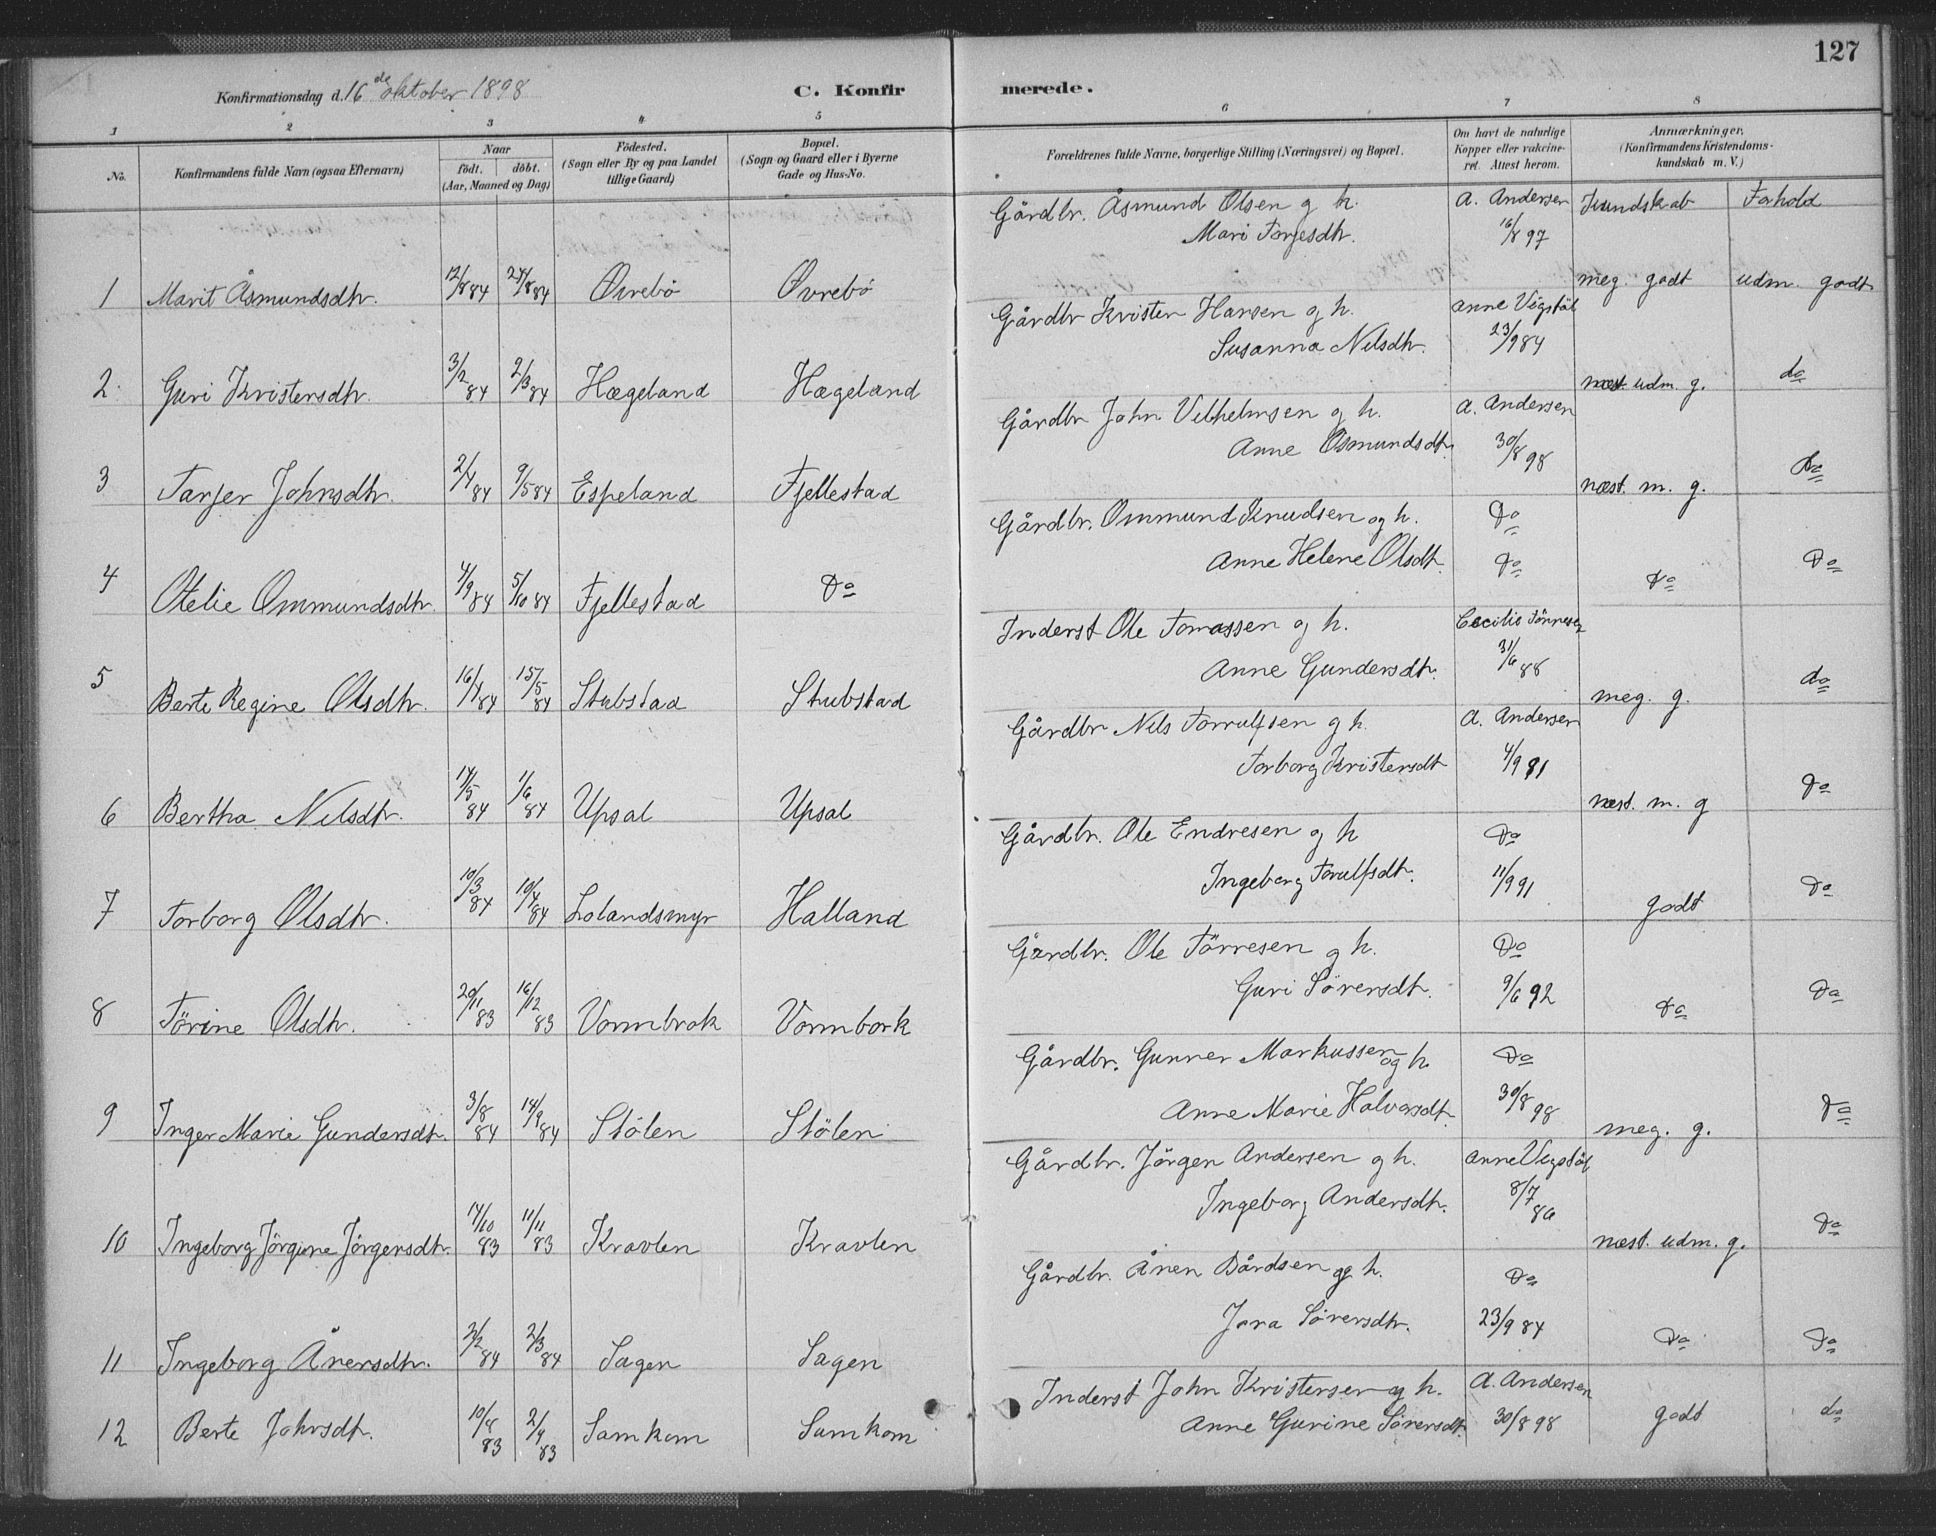 127
Konfirmationsdag d. 16de oktober 1898 C. Konfirmerede.
1 2 3 4 5 6 7 8
No. Konfirmandens fulde Navn (ogsaa Efternavn) Naar födt. döbt. (Aar, Maaned og Dag) Födested. (Sogn eller By og paa Landet tillige Gaard) Bopæl. (Sogn og Gaard eller i Byerne Gade og Hus-No. Forældrenes fulde Navne, borgerlige Stilling (Næringsvei) og Bopæl. Om havt de naturlige Kopper eller vakcineret. Attest herom. Anmærkninger. (Konfirmandens Kristendomskundskab m. V.)
Kundskab Forhold
1 Marit Åsmundsdtr. 12/8 84 24/8 84 Øvrebö Øvrebö Gårdbr. Åsmund Olsen og h. Mari Torjesdtr. A. Andersen 16/8 97 meg. godt udm. godt
2. Guri Kristensdtr. 3/2 84 2/3 84 Hægeland Hægeland Gårdbr Kristen Hansen og h. Susanna Nilsdtr. Anne Vigstöl 23/9 84 næst udm. g. do
3 Tarjer Johnsdtr. 2/4 84 9/5 84 Espeland Fjellestad Gårdbr John Vilhelmsen og h. Anne Osmundsdtr. A. Andersen 30/8 98 næst. m. g. Do
4 Otelie Ommundsdtr. 4/9 84 5/10 84 Fjellestad Do Gårdbr. Ommund Knudsen og h. Anne Helene Olsdtr. Do Do Do Do
5 Berte Regine Olsdtr. 16/4 84 15/5 84 Stubstad Stubstad Inderst Ole Tomassen og h. Anne Gundersdtr. Cecilie Tönnesen 31/6 88 meg. g. do
6 Bertha Nilsdtr. 14/5 84 1/6 84 Upsal Upsal Gårdbr Nils Torrulfsen og h. Torborg Kristensdtr A. Andersen 4/9 91 næst. m. g Do
7 Torborg Olsdtr. 10/3 84 10/4 84 Lolandsmyr Halland Gårdbr. Ole Endresen og h Ingeborg Torulfsdtr. Do 11/9 91 godt Do
8 Törine Olsdtr. 20/11 83 16/12 83 Vormbrok Vormbork Gårdbr. Ole Törresen og h. Guri Sörensdtr. Do 9/6 92 Do Do
9 Inger Marie Gundersdtr. 3/8 84 14/9 84 Stölen Stölen Gårdbr. Gunner Markussen og h. Anne Marie Halvorsdtr. Do 30/8 98 meg. g. Do
10 Ingeborg Jörgine Jörgensdtr. 14/10 83 11/11 83 Kravlen Kravlen Gårdbr. Jörgen Andersen og h. Ingeborg Andersdtr. Anne Vigstöl 8/7 86 næst. udm. g. Do
11 Ingeborg Ånensdtr. 2/2 84 2/3 84 Sagen Sagen Gårdbr. Ånen Bårdsen og h. Jora Sörensdtr. Do 23/9 84 Do Do
12 Berte Johnsdtr. 83 83 Samkom Samkom Inderst John Kristensen og h. Anne Gurine Sörensdtr. A. Andersen 30/8 98 godt do